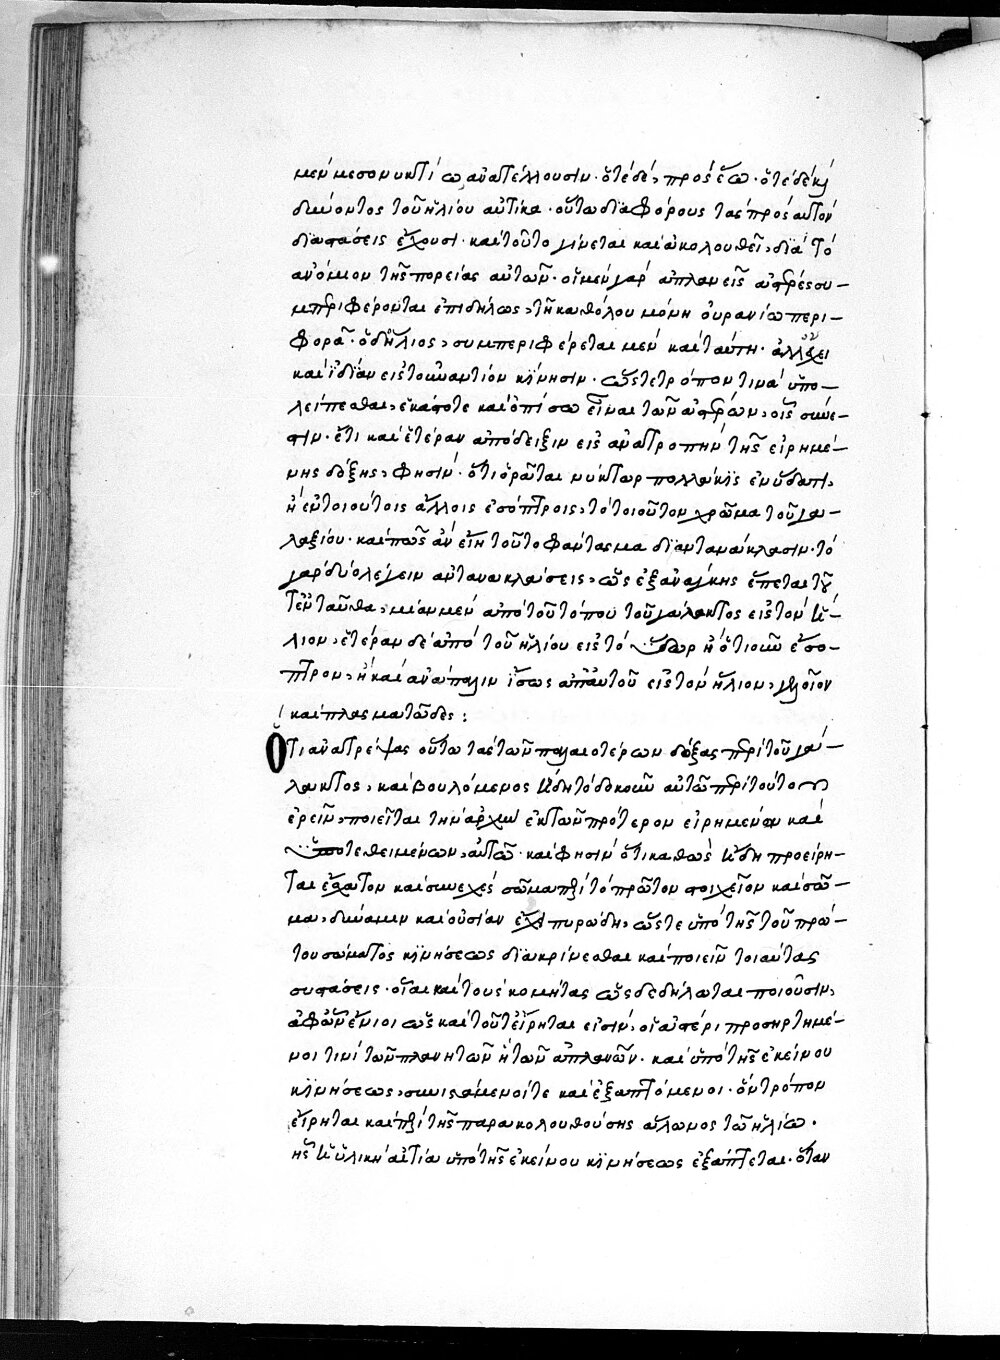 μὲν μεσονυκτίω ἀνατέλλουσιν· ὁτὲ δὲ, πρὸς ἕω· ὁτὲ δὲ καὶ
δύνοντος τοῦ ἡλίου αὐτίκα· οὕτω διαφόρους τὰς πρὸς αὐτὸν
διαστάσεις ἔχουσι· καὶ τοῦτο γίνεται καὶ ἀκολουθεῖ, διὰ τὸ
ἀνόμοιον τῆς πορείας αὐτῶν· οἱ μὲν γὰρ ἀπλανεῖς ἀστέρες συ–
μπεριφέρονται ἐπιδήλως, τῆ καθόλου μόνη οὐρανίω περι–
φορᾶ· ὁ δ' ἥλιος, συμπεριφέρεται μὲν καὶ ταύτη· ἀλλ' ἔχει
καὶ ἰδίαν εἰς τοὐναντίον κίνησιν· ὥστε τρόπον τινὰ ὑπο–
λείπεσθαι, ἑκάστοτε καὶ ὀπίσω εἶναι τῶν ἀστέρων, οἷς σύνε–
στιν· ἔτι καὶ ἑτέραν ἀπόδειξιν εἰς ἀνατροπὴν τῆς εἰρημέ–
νης δόξης, φησὶν· ὅτι ὁρᾶται νύκτωρ πολλάκις ἐν ὕδατι,
ἢ ἐν τοιούτοις ἄλλοις ἐσόπτροις, τὸ τοιοῦτον χρῶμα τοῦ γα–
λαξίου· καὶ πῶς ἂν εἴη τοῦτο φάντασμα δι' ἀντανάκλασιν· τὸ
γὰρ δύο λέγειν ἀντανακλάσεις, ὡς ἐξ ἀνάγκης ἕπεται τῶ
τἐνταῦθα, μίαν μὲν ἀπὸ τοῦ τόπου τοῦ γάλακτος εἰς τὸν ἥ–
λιον, ἑτέραν δὲ ἀπὸ τοῦ ἡλίου εἰς τὸ ὕδωρ ἢ ὁτιοῦν ἔσο–
πτρον, ἢ καὶ ἀνάπαλιν ἴσως ἀπ' αὐτοῦ εἰς τὸν ἥλιον, γελοῖον
καὶ πλασματῶδες:
Ὅτι ἀνατρέψας οὕτω τὰς τῶν παλαιοτέρων δόξας περὶ τοῦ γά–
λακτος, καὶ βουλόμενος ἤδη τὸ δοκοῦν αὐτῶ περὶ τούτου
ἐρεῖν, ποιεῖται τὴν ἀρχὴν ἐκ τῶν πρότερον εἰρημένων καὶ
ὑποτεθειμένων, αὐτῶ· καὶ φησὶν ὅτι καθὼς ἤδη προείρη–
ται ἔσχατον καὶ συνεχὲς σῶμα περὶ τὸ πρῶτον στοιχεῖον καὶ σῶ–
μα, δύναμιν καὶ οὐσίαν ἔχει πυρώδη, ὥστε ὑπὸ τῆς τοῦ πρώ–
του σώματος κινήσεως διακρίνεσθαι καὶ ποιεῖν τοιαύτας
συστάσεις· οἷαι καὶ τοὺς κομήτας ὡς δεδήλωται ποιοῦσιν,
ἀφ' ὧν ἔνιοι ὡς καὶ τοῦτ' εἴρηται εἰσὶν, οἱ ἀστέρι προσηρτημέ–
νοι τινὶ τῶν πλανητῶν ἢ τῶν ἀπλανῶν· καὶ ὑπὸ τῆς ἐκείνου
κινήσεως, συνιστάμενοί τε καὶ ἐξαπτόμενοι· ὃν τρόπον
εἴρηται καὶ περὶ τῆς παρακολουθούσης ἅλωνος τῶ ἡλίω·
ἧς ἡ ὑλικὴ αἰτία ὑπὸ τῆς ἐκείνου κινήσεως ἐξάπτεται· ὅταν